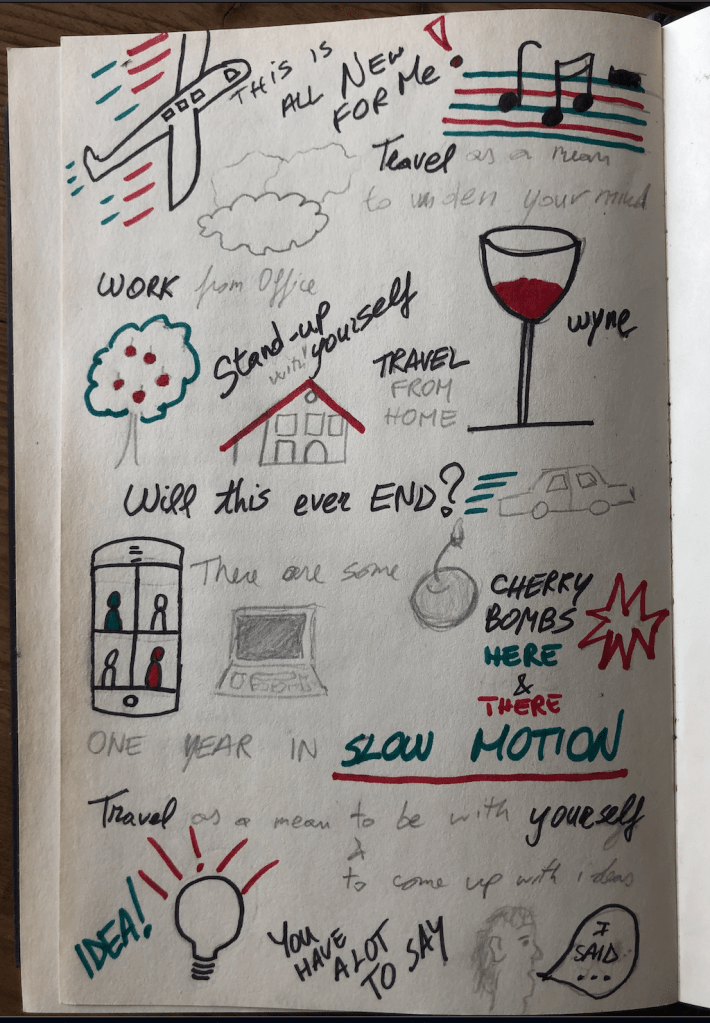 THIS IS
ALL NEW
FOR Me!
Travel as a mean
to widen your mind
WORK from Office
Stand-up
with yourself
wyne
TRAVEL
FROM
HOME
Will this ever END?
There are some
CHERRY
BOMBS
HERE
&
THERE
ONE YEAR IN SLOW MOTION
Travel as a mean to be with yourself
&
to come up with ideas
IDEA!
YOU
HAVE
A LOT
TO SAY
I
SAID
...